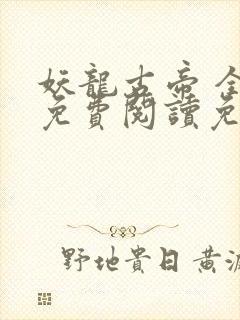 妖龍古帝 全
免費閱讀免
野地貴日黃